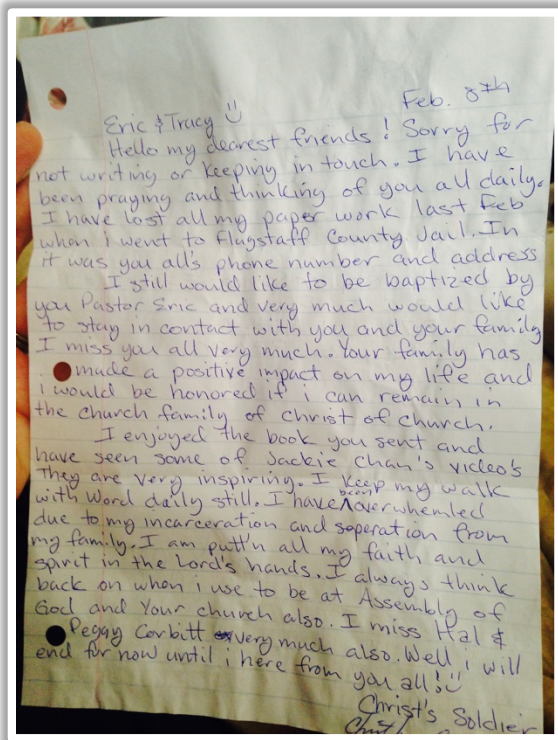 Feb. 8th
Eric & Tracy
Hello my dearest friends! Sorry for
not writing or keeping in touch. I have
been praying and thinking of you all daily.
I have lost all my paper work last Feb
when i went to Flagstaff County Jail. In
it was you all's phone number and address
I still would like to be baptized by
you Pastor Eric and very much would like
to stay in contact with you and your family
I miss you all very much. Your family has
made a positive impact on my life and
i would be honored if i can remain in
the church family of Christ of church.
I enjoyed the book you sent and
have seen some of Jackie Chan's video's
They are very inspiring. I keep my walk
with Word daily still. I have been overwhemled
due to my incarceration and seperation from
my family. I am putt'n all my faith and
spirit in the Lord's hands. I always think
back on when i use to be at Assembly of
God and Your church also. I miss Hal &
Peggy Corbitt very much also. Well i will
end for now until i here from you all!
Christ's Soldier